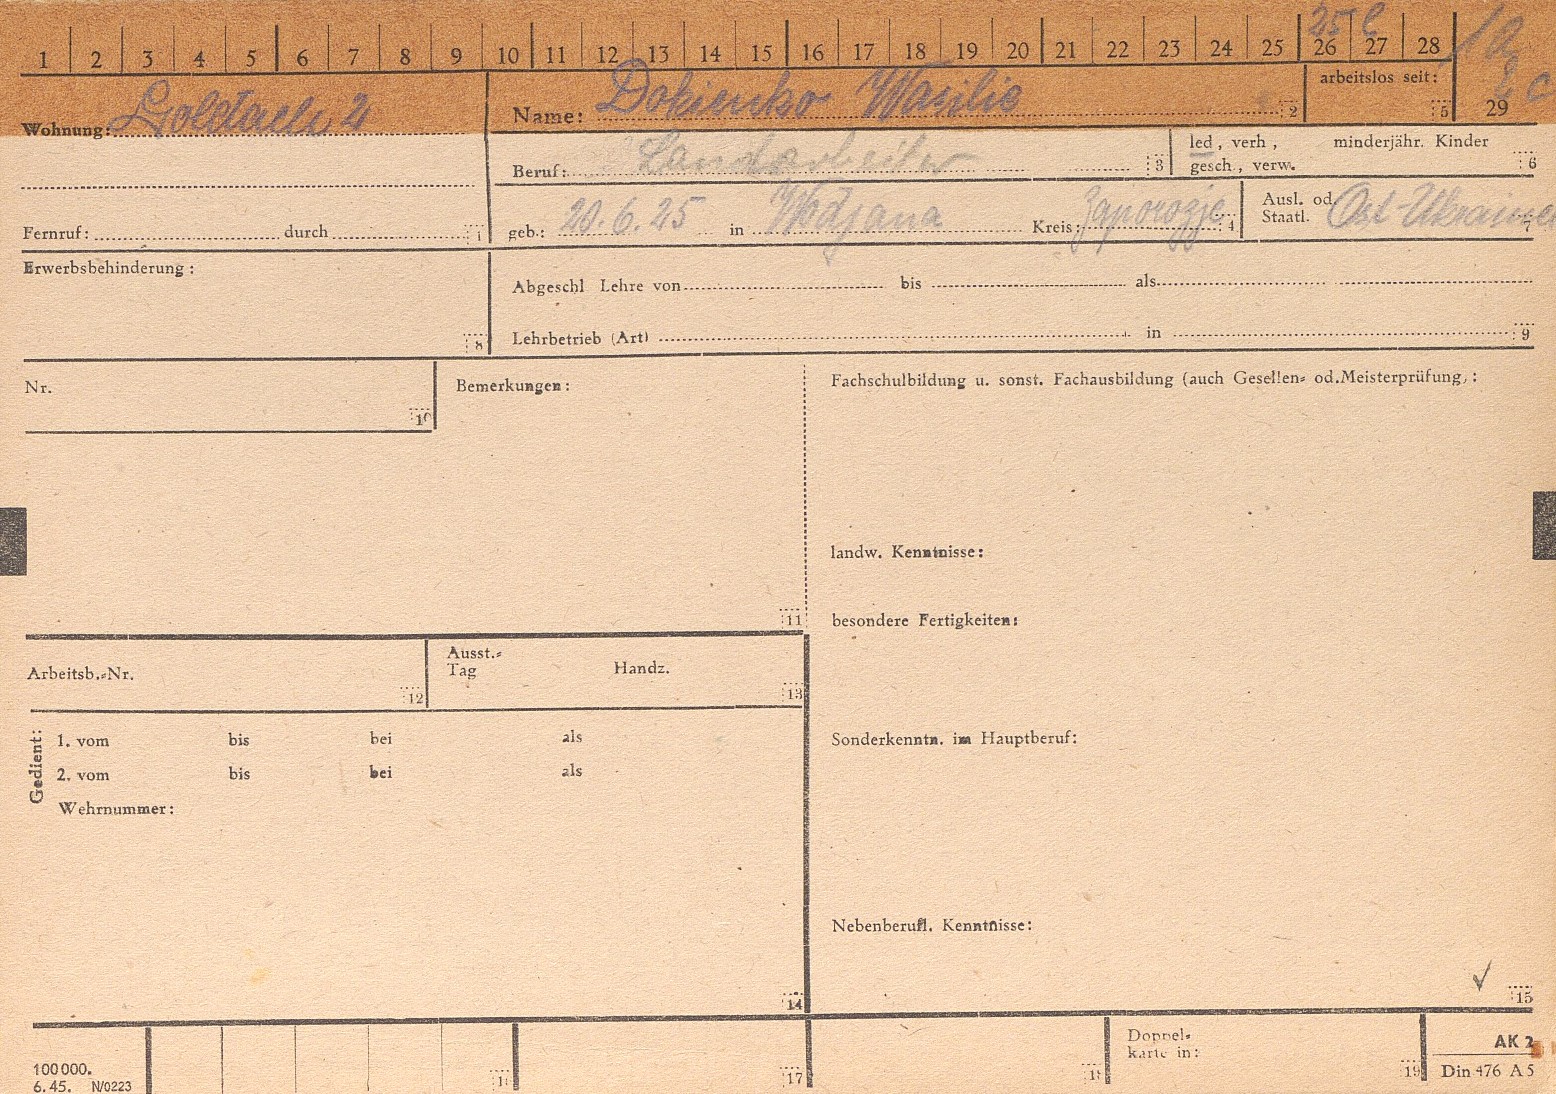 25 C
1 2 3 4 5 6 7 8 9 10 11 12 13 14 15 16 17 18 19 20 21 22 23 24 25 26 27 28
arbeitslos seit: 5
29
Wohnung: Goldach 2
Name: Dokienko Wasilie 2
Beruf: Landarbeiter 3
led, verh, minderjähr. Kinder
gesch, verw. 6
Fernruf: durch 1
geb.: 20.6.25 in Wodjana Kreis: Zaporozje 4
Ausl. od.
Staatl. Ost-Ukrainer 7
Erwerbsbehinderung: 8
Abgeschl Lehre von bis als
Lehrbetrieb (Art) in 9
Nr. 10
Bemerkungen:
11
Fachschulbildung u. sonst. Fachausbildung (auch Gesellen= od. Meisterprüfung):
landw. Kenntnisse:
besondere Fertigkeiten:
Arbeitsb.=Nr. 12
Ausst.=
Tag Handz. 13
Gedient:
1. vom bis bei als
2. vom bis bei als
Wehrnummer:
14
Sonderkenntn. im Hauptberuf:
Nebenberufl. Kenntnisse:
15
100000.
6.45. N/0223
17
18
Doppel=
karte in: 19
AK 2
Din 476 A5